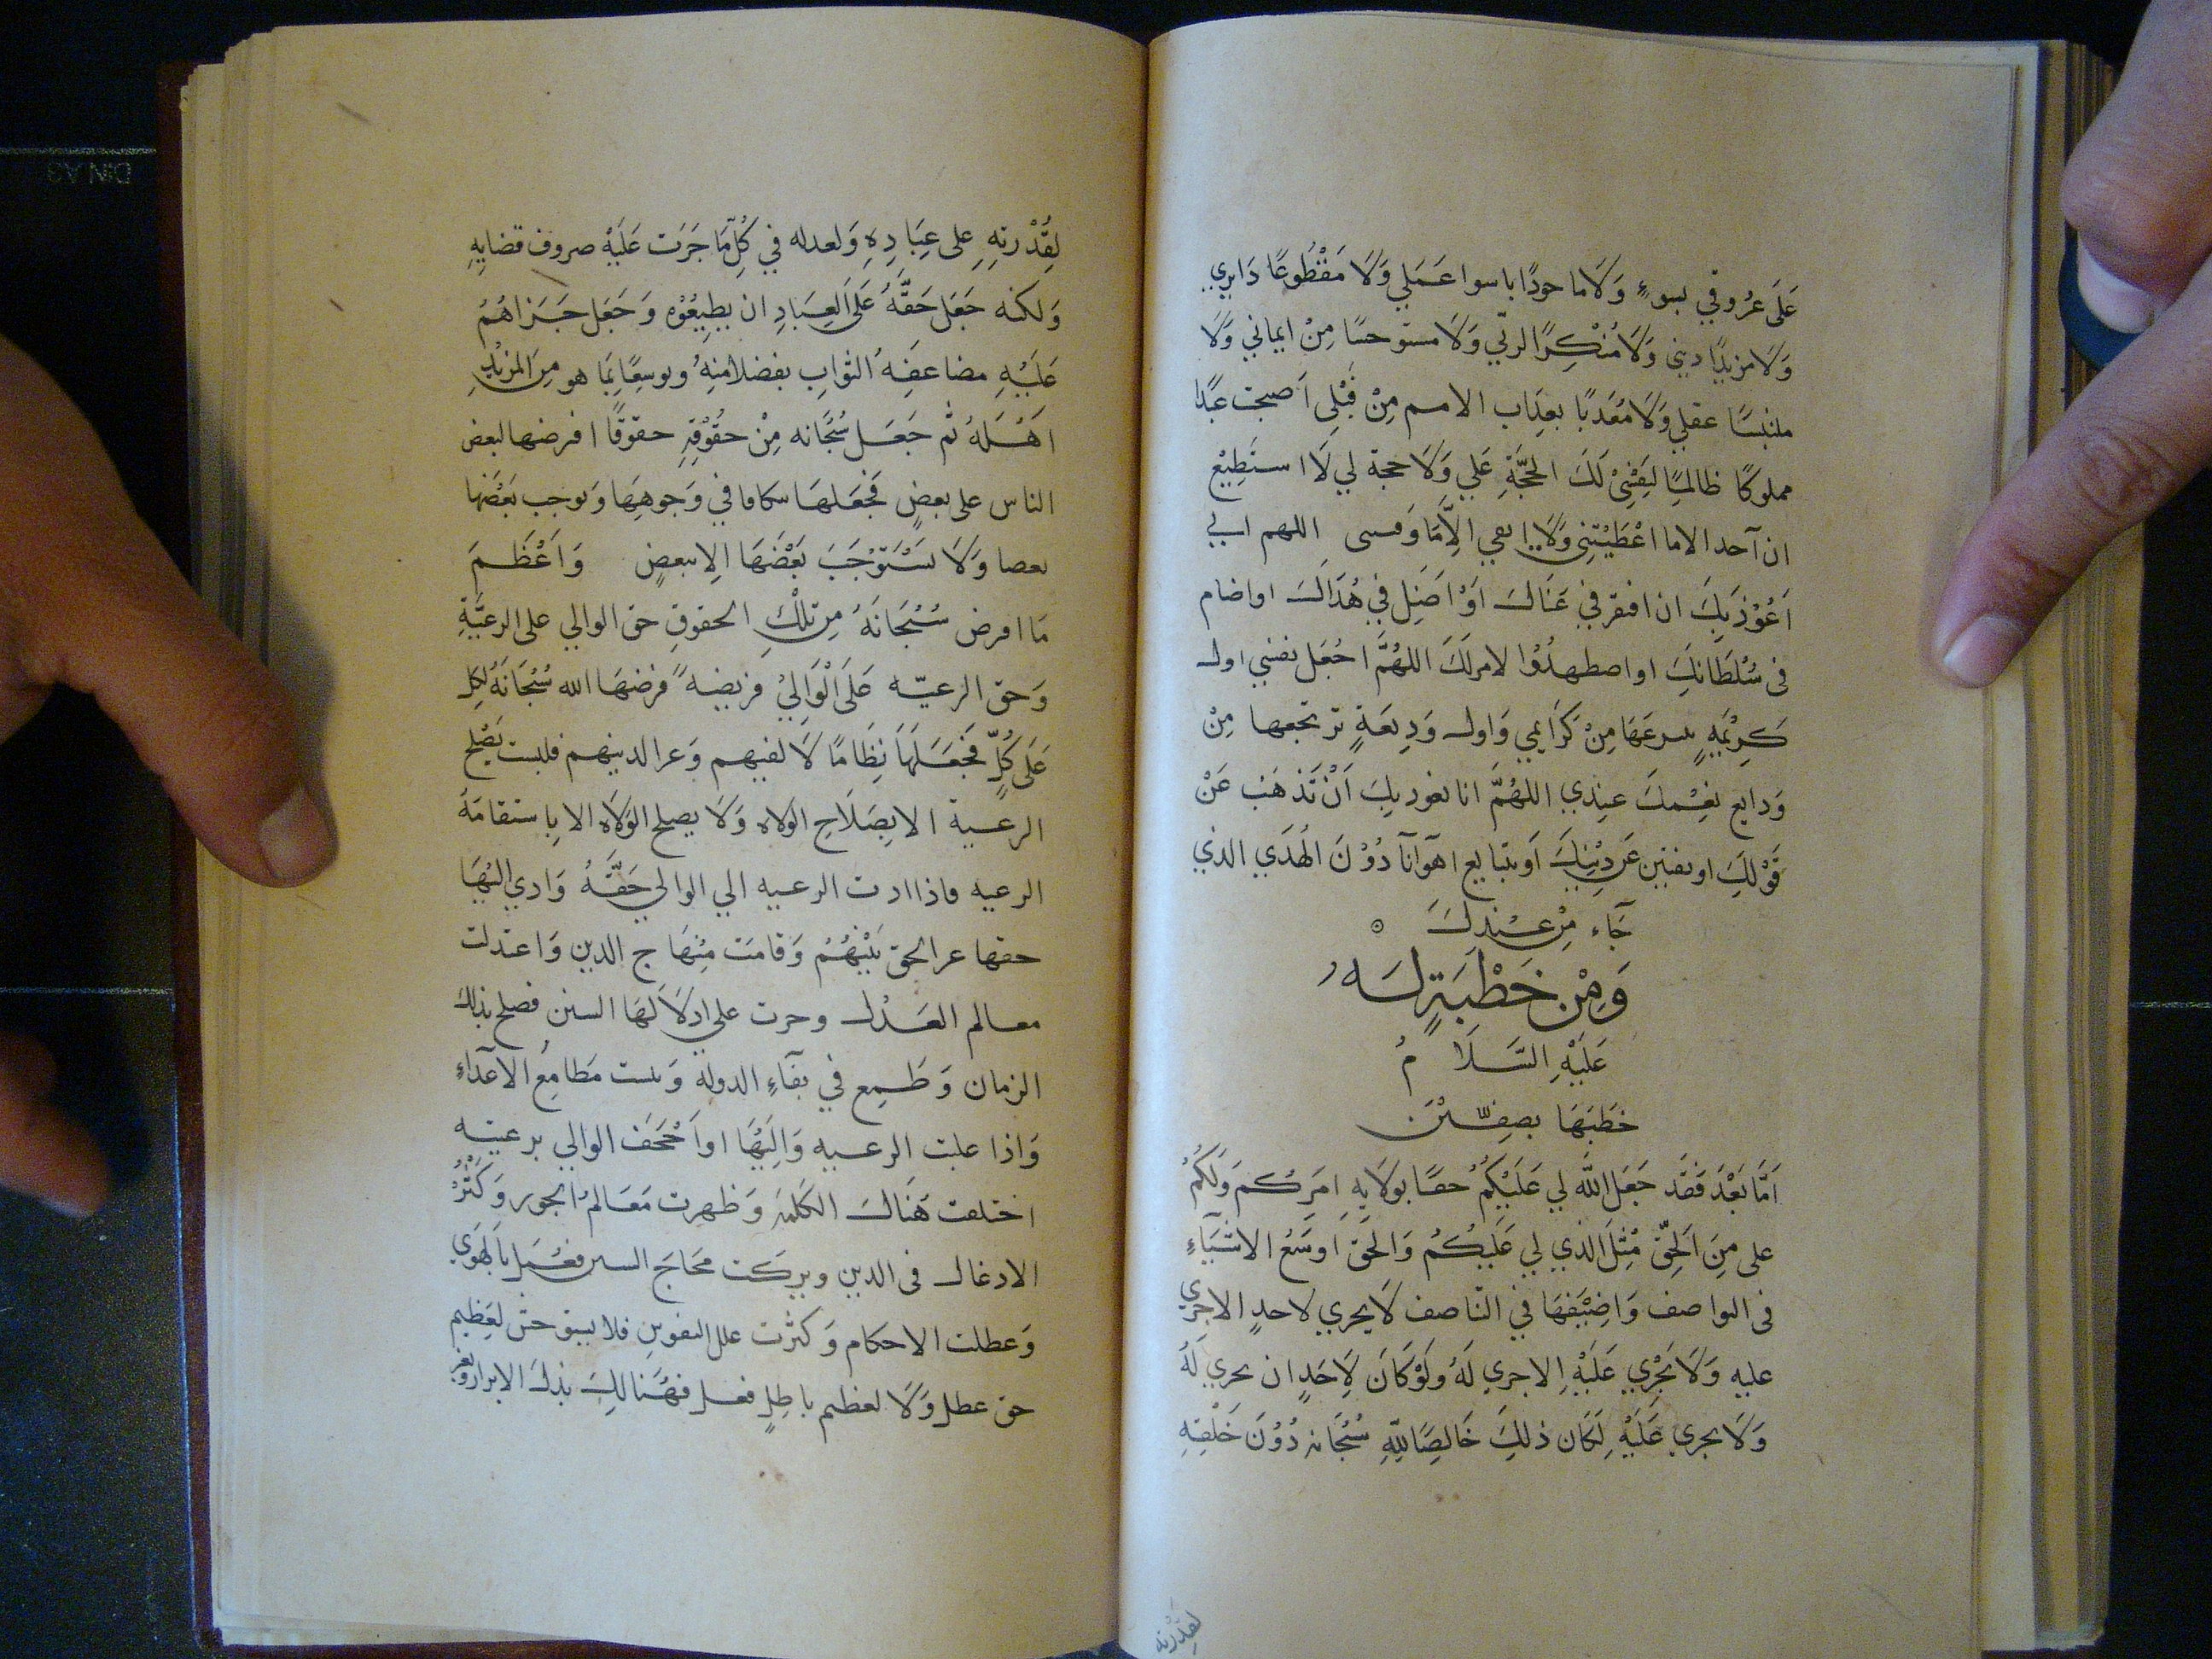 عَلَى عُرُوقي بسوءٍ وَلَا ماخودًا باسوا عَمَلي وَلَا مَقْطُوعًا دَابري
وَلَا مرتدًا ديني وَلَا مُنْكِرًا لربّي وَلَا مستوحسًا مِنْ ايماني وَلَا
ملتبسًا عقلي وَلَا مُعَذبًا بعذَاب الامم مِنْ قَبْلي اَصبحت عَبدًا
مملوكًا ظالمًا لنَفْسِيْ لَكَ الحُجَّةِ عَلي وَلَا حجة لي لَا استَطِيْع
ان آخد الا ما اعْطَيْتني وَلَا اتقي الَّا مَا وَقىىى اللهم اني
اَعُوْذ بِكَ ان افتقر في غنَاكَ اَوْ اَضَل في هُدَاكَ او اضام
فى سُلطَانكَ او اصطهدُوا لامر لَكَ اللهُمَّ اجْعَل نفسي اول
كَرِيْمَهٍ ىىىرعَهَا مِنْ كَرَايمي وَاول وَدِيعَةٍ ترتجعها مِنْ
وَدايع نِعْمِكَ عِنْدي اللهُمَّ انا نعوذ بِكَ اَنْ تَذهَبَ عَنْ
قَوْلكَ او نفتتن عَن دِيْنِكَ اَو تتابع اهَوَآنا دُوْنَ الهُدَي الذي
جَآء مِنْ عِنْدِكَ ۞
وَمِنْ خُطْبَةٍ لَهُ
عَلَيْهِ السَّلَامُ
خَطَبَهَا بصِفِّيْنَ
اَمَّا بَعْدَ فَقَد جَعَل اللَّه لي عَلَيْكُمُ حقًا بولَايهِ امَركُم وَلَكُمْ
على مِنَ الحقّ مُثِلَ الذي لي عَلَيكُمْ وَالحَقّ اَوسَعُ الاشيَآءِ
فى التواصف وَاضِيْقهَا في التناصف لَا يجري لاحدٍ الاجري
عليهِ وَلَا يَجْرِي عَلَيْهِ الاجري لَهُ وَلَوْ كَانَ لاَحَدٍ ان ىجري لَهُ
وَلَا يجري عَلَيْهِ لكَان ذلِكَ خَالصًا للّهِ سُبْحَانه دُوْنَ خَلْقِهِ
لِقُدْرته
لِقُدْرتِهِ على عِبَادِهِ وَلعدله في كُلِ مَا جَرَت عَلَيْهِ صروف قضايهِ
وَلكنه جَعَل حَقّهُ عَلَى العِبَادِ ان يطِيعُوْه وَجَعَل جَزَاهُمُ
عَلَيْهِ مضاعفَهُ الثوابِ بفضلا مِنهُ وتوسعًا بمَا هو مِنَ المزيْدِ
اَهْلَهُ ثم جَعَل سُبْحَانه مِنْ حقُوْقِهِ حقوقًا افرضها لبعض
الناس على بعضٍ فَجَعَلهَا ىىكافا في وَجوههَا وَيوجب بَعْضَها
بعصا وَلَا يستَوْجَبَ بَعْضَهَا الا ببعضٍ وَاَعْظَمَ
مَا افرض سُبْحَانَهُ مِن تلْكِ الحقوقِ حق الوالي على الرعَيَّةِ
وَحق الرعيّه عَلَى الْوَالِيْ فريضهً فرضهَا الله سُبْحَانَهُ لكلِ
عَلَى كُلٍّ فَجَعَلَهَا نِظَامًا لَالفتهم وَعزا لدينهم فليست تَصْلح
الرعية الا بِصَلَاحِ الولاه وَلَا يصلح الوُلَاه الا بِاستقامَة
الرعيه فاذا ادت الرعيه الي الوالي حَقَّهُ وَادي اليْهَا
حقها عز الحق بَيْنهُمْ وَقامَت مِنْهَاج الدين وَاعتدلت
معالم العَدْل وجرت على ادلَالهَا السنن فصلح بذلكَ
الزمان وَطَمِع في بقآءِ الدولة وَىىست مَطامِعُ الاعدَآءِ
وَاذا غلبت الرعيه وَالِيْهَا او اَجْحَف الوالي برعيته
اختلفت هَنَالكَ الكَلمَة وَظهرت مَعَالمُ الجور وَكَثُرْ
الادغال فى الدين وىركت محَاجَ السىن فعُمَل بالهَوَي
وَعطلت الاحكام وَكثرت علل النفوسِ فلا يستوحش لِعَظِيم
حق عطل وَلَا لعظيم باطِلٍ فعل فهُنالِكَ بذلَ الابرار وتعز